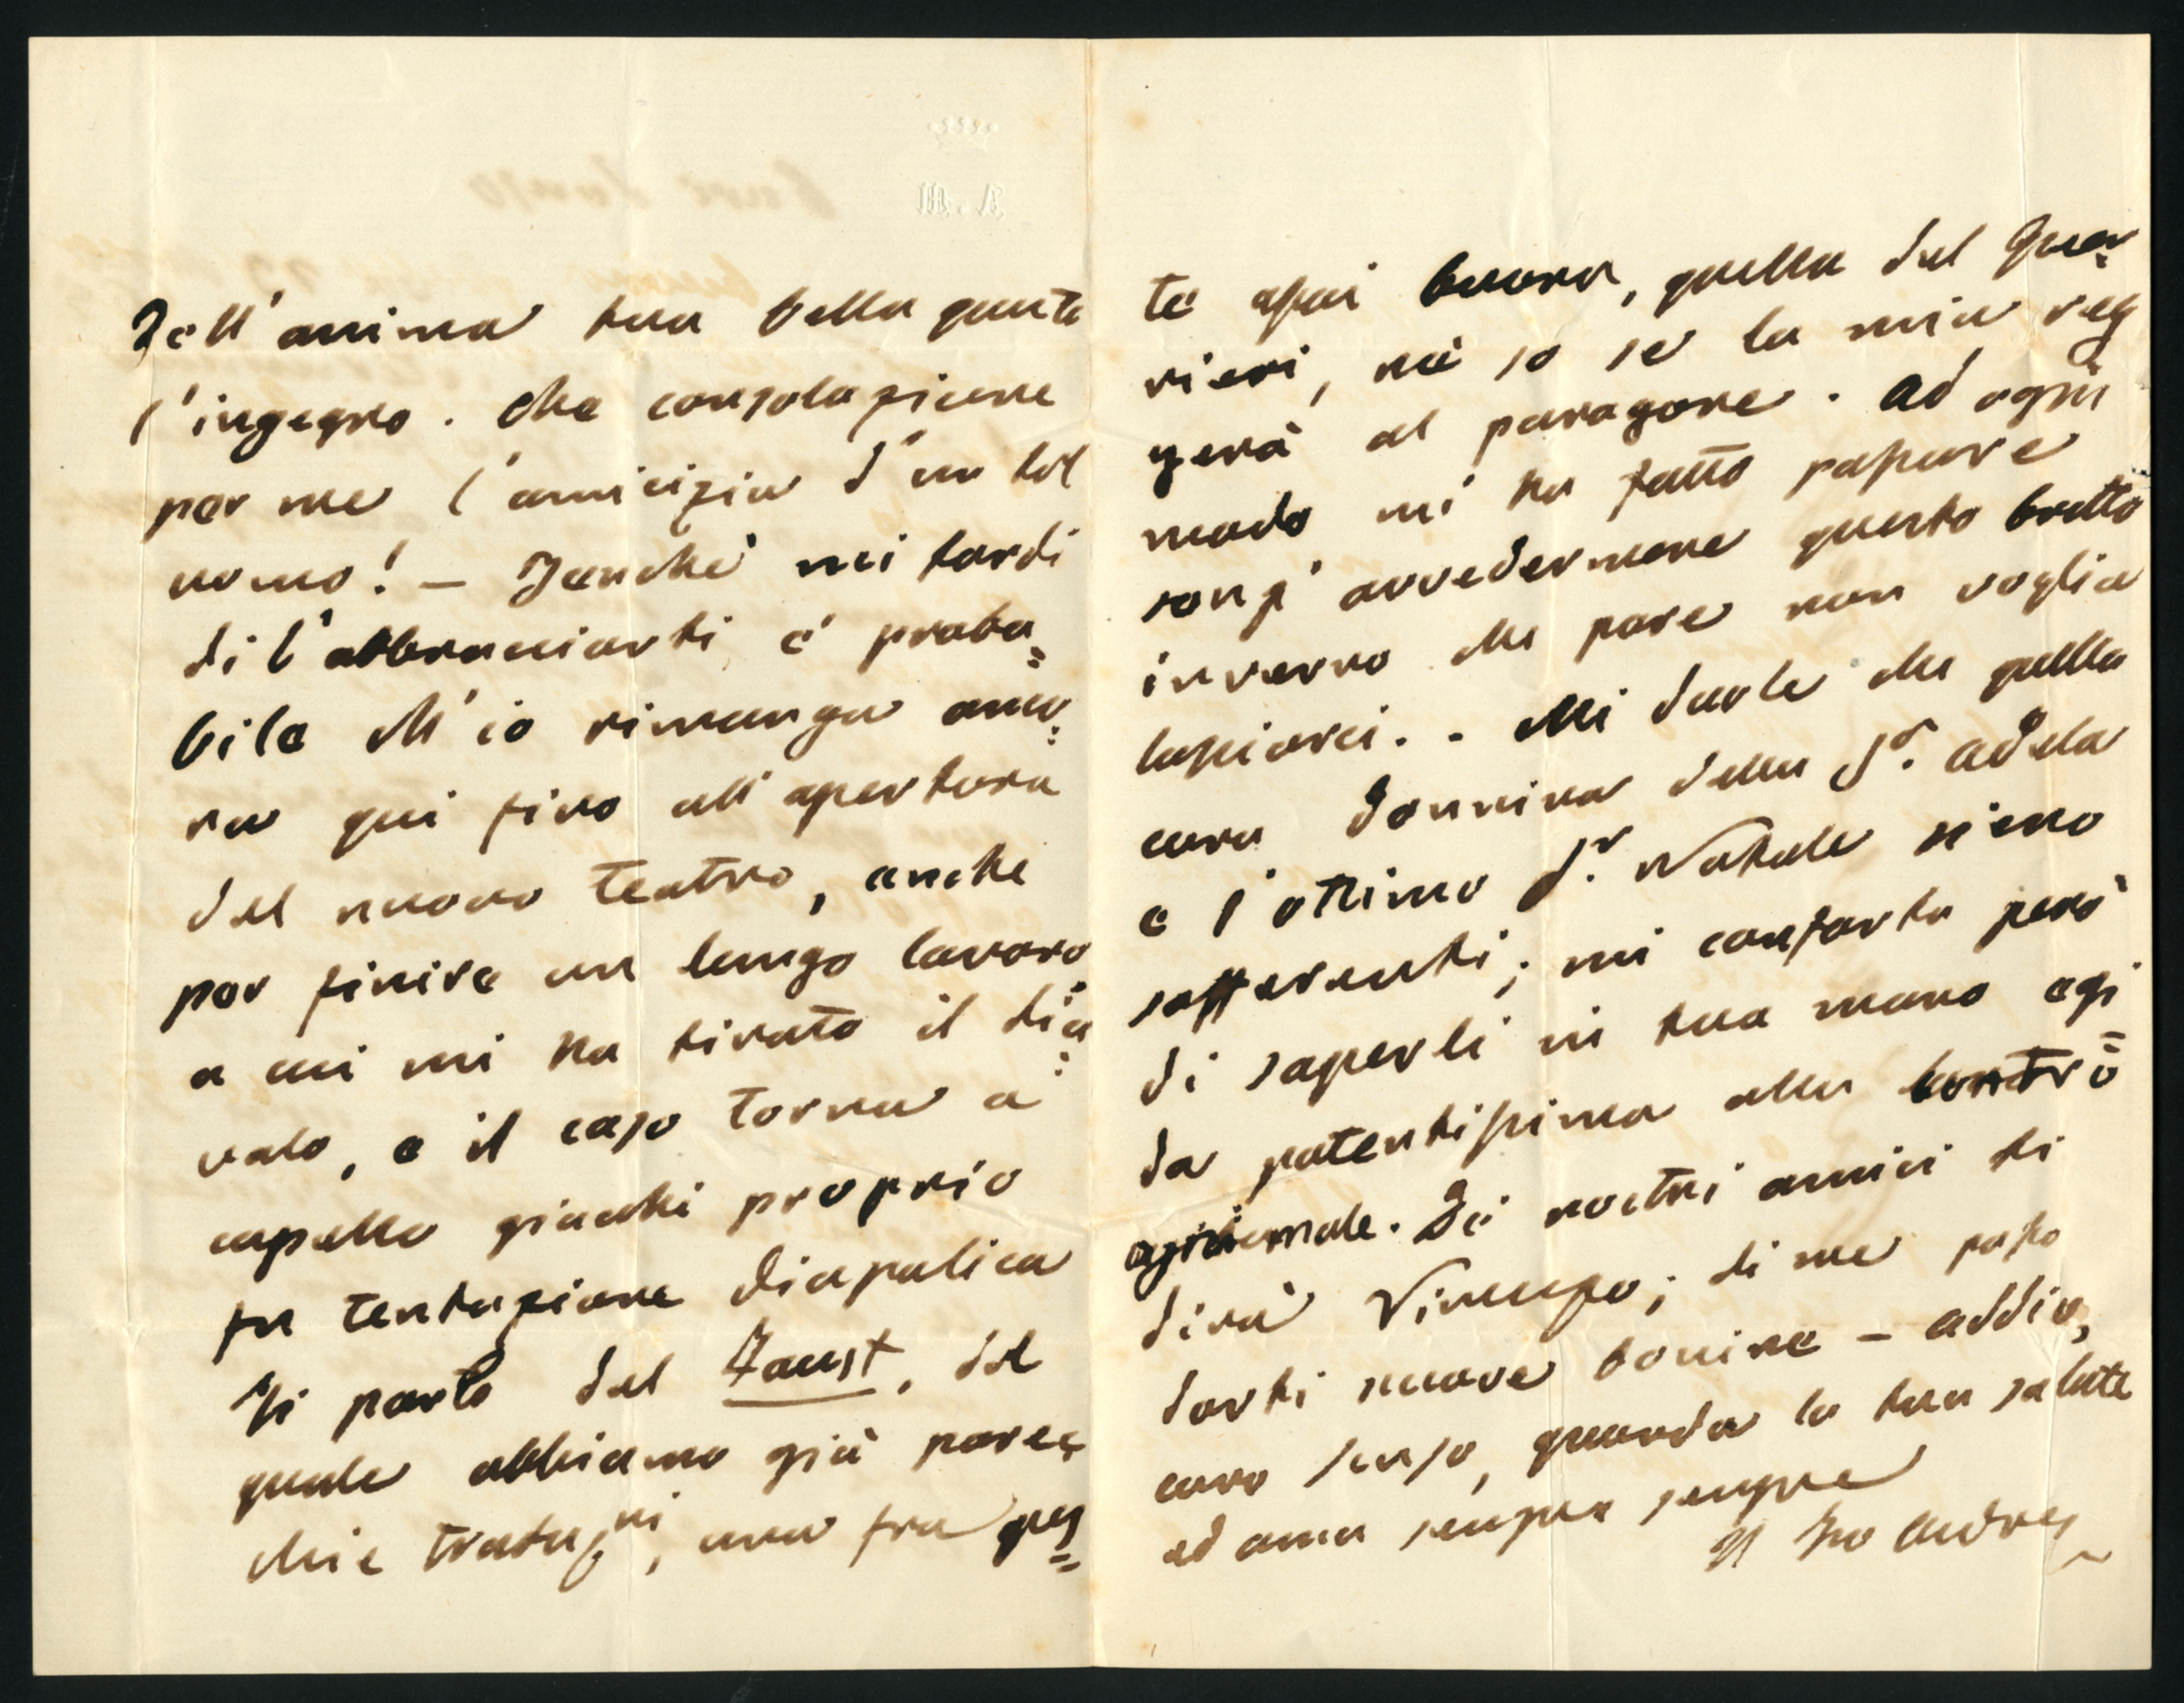 dell'anima tua bella quanto
l'ingegno. Che consolazione
per me l'amicizia d'un tal
uomo! — Benché mi tardi
di l'abbracciarti, è proba=
bile ch'io rimanga anco=
ra qui fino all'apertura
del nuovo teatro, anche
per finire un lungo lavoro
a cui mi ha tirato il dia=
volo, e il caso torna a
capello giacchè proprio
fu tentazione diapolica
Si parla del Faust, del
quale abbiamo già parec=
chie traduzni, una fra ques=
te assai buona, quella del Guer=
rieri, nè so se la mia reg
gerà al paragone. Ad ogni
modo mi ha fatto passare
senz'avvedermene questo brutto
inverno che pare non voglia
lasciarci. - Mi duole che quella
cara donnina della Sra. Adela
e l'ottimo Sr. Natale sieno
sofferenti; mi conforta però
di saperli in tua mano egi
da potentissima alla
Dei nostri amici ti
dirà Vincenzo; di me posso
darti nuove bonine — addio,
caro, guarda la tua salute
ed ama sempre sempre
Il tuo Andrea
A. M